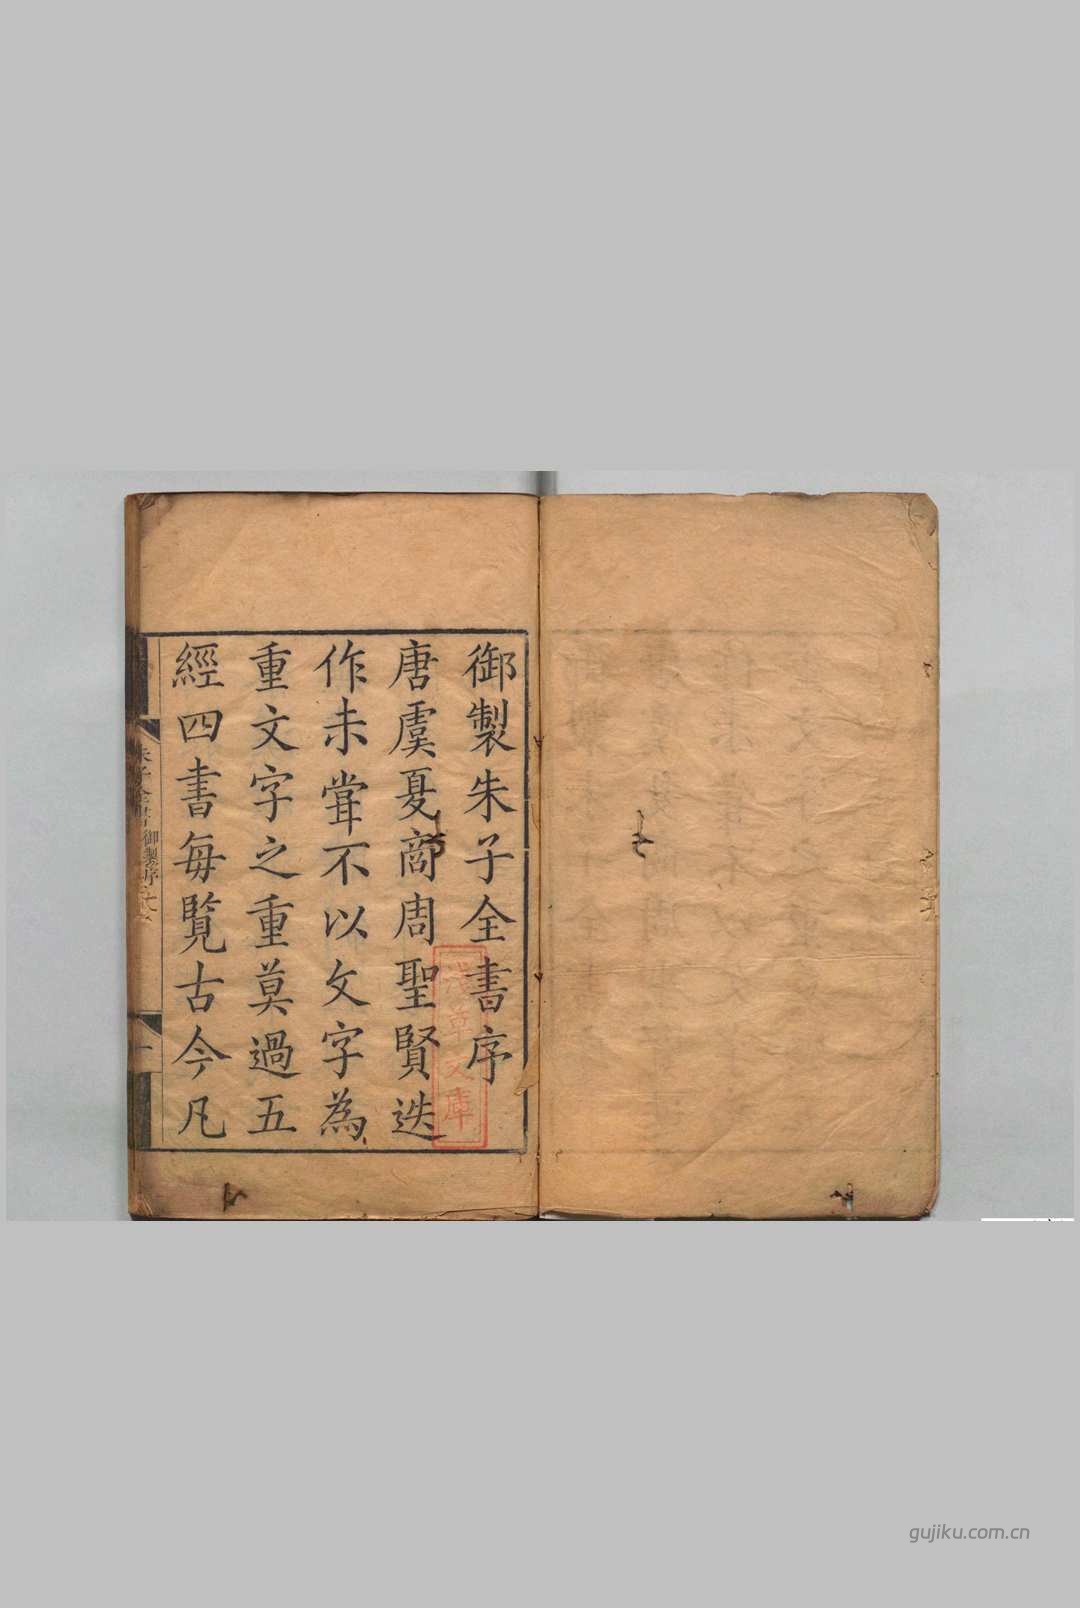 御製朱子全書序
唐虞夏商周聖賢迭
作未嘗不以文字為
重文字之重莫過五
經四書每覽古今凡
朱子全書
御製序
一
淺草文庫
gujiku.com.cn